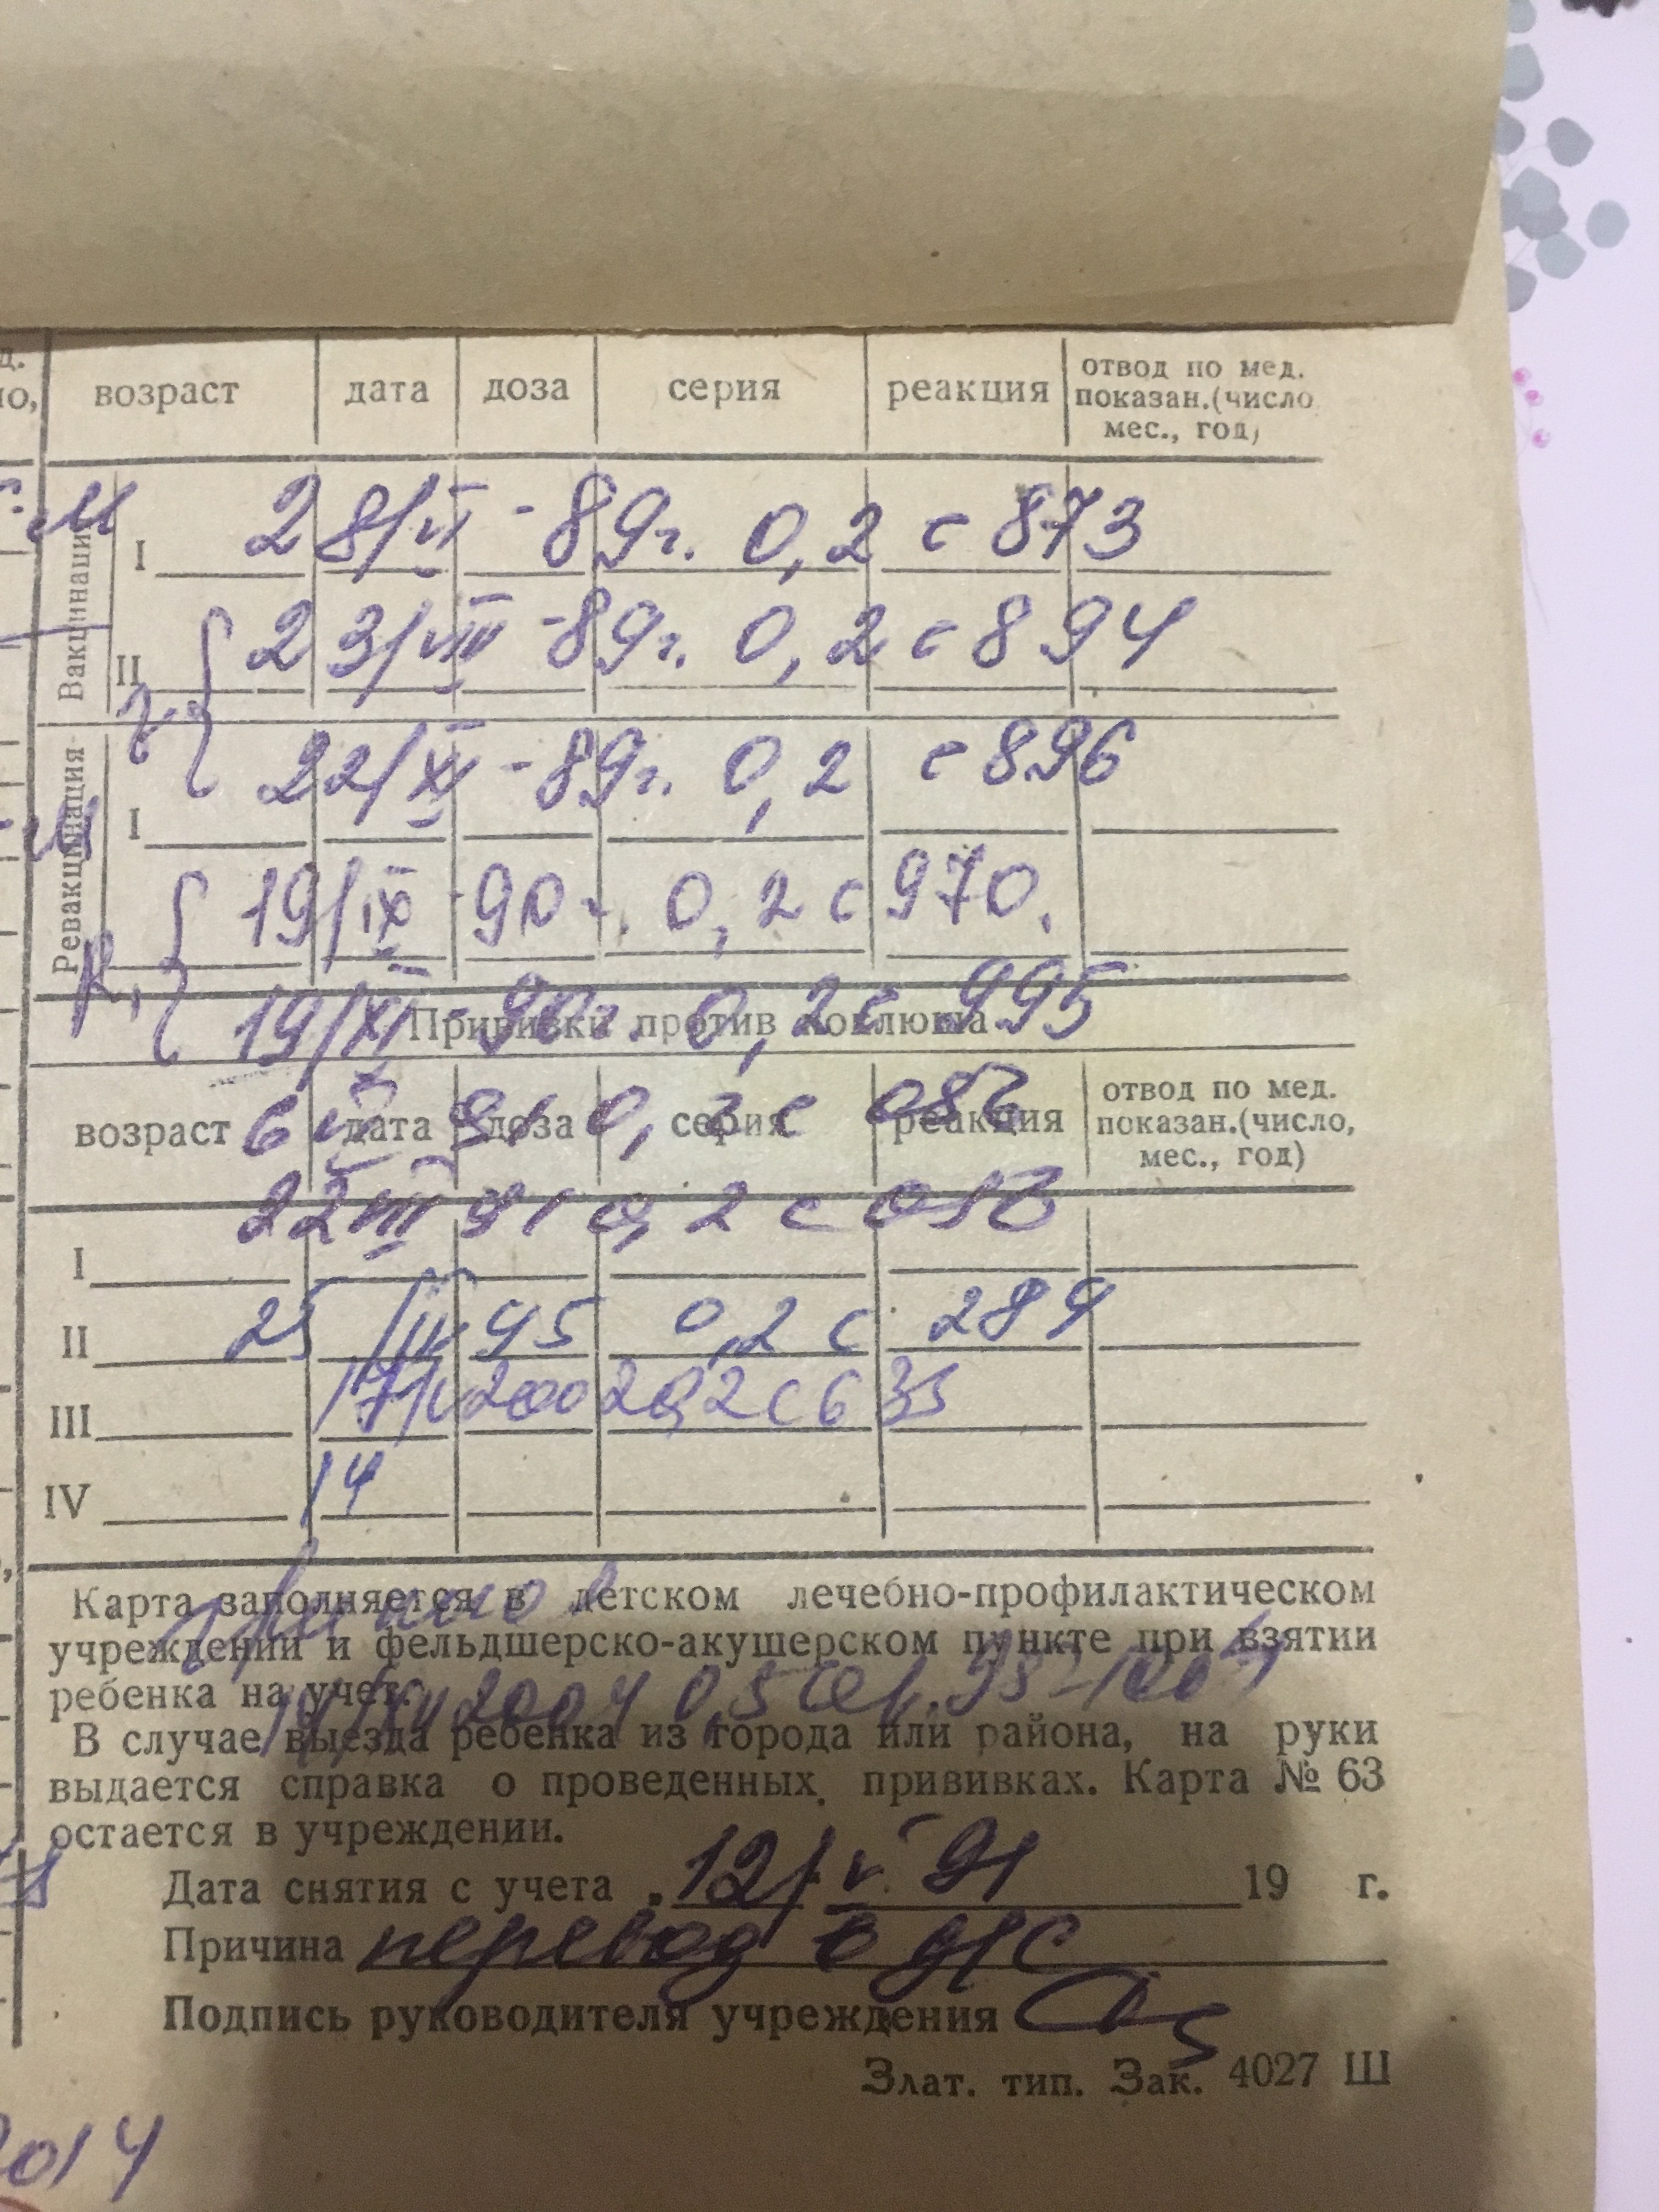 возраст дата доза серия реакция отвод по мед. показан.(число мес., год)
Вакцинация
I 28/VI -89г. 0,2 с 873
II 23/VIII -89г. 0,2 с 894
Ревакцинация
22/XI -89г. 0,2 с 896
I
19/IX -90г. 0,2 с 970.
19/XI -90г. 0,2 с 995
Прививки против коклюша
возраст дата доза серия реакция отвод по мед. показан.(число, мес., год)
6 91 0,2 с
22 VIII 91 0,2 с
I
II 25 95 0,2 с 284
III 2002 0,2 с 635
IV 14
Карта заполняется в детском лечебно-профилактическом
учреждении и фельдшерско-акушерском пункте при взятии
ребенка на учет.
2004 0,5
В случае выезда ребенка из города или района, на руки
выдается справка о проведенных прививках. Карта № 63
остается в учреждении.
Дата снятия с учета 12/V 91 19 г.
Причина перевод в д/с
Подпись руководителя учреждения
Злат. тип. Зак. 4027 Ш
2014